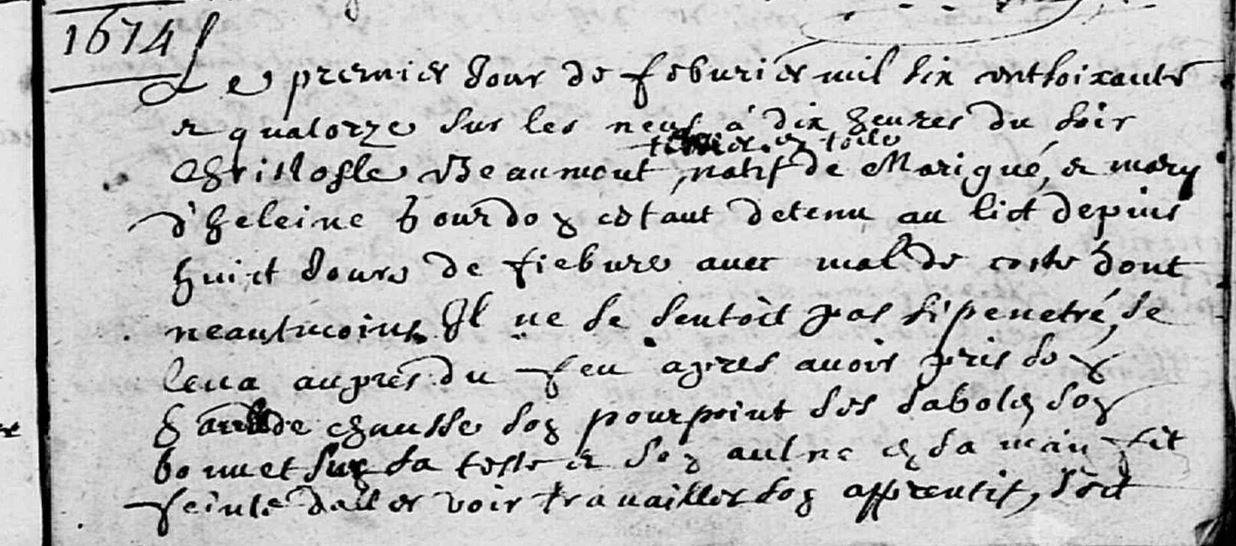 1674
Le premier Jour de feburier mil six cent soixante
et quatorze sur les neuf a dix heures du soir
tissier en toile
Christofle Beaumont, natif de Marigné, et mary
d'heleine bourdon estant detenu au lict depuis
huict Jours de fiebure auec mal de coste dont
neantmoins Il ne se sentoit pas si penetré, se
leua aupres du feu apres auoir pris son
haut de chausse son pourpoint ses sabots son
bonnet sur sa teste et son aulne en sa main fit
feinte daller voir trauailler son apprentif, sort